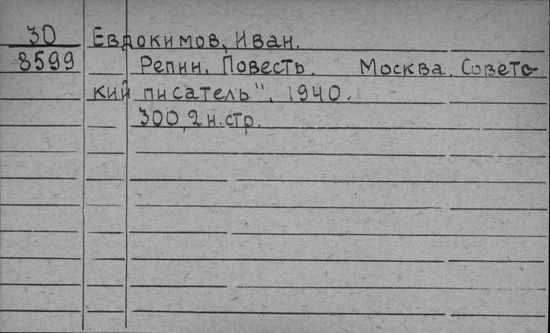 30 Евдокимов, Иван.
8599 Репин. Повесть. Москва. Советс-
кий писатель", 1940.
300, 2 н. стр.